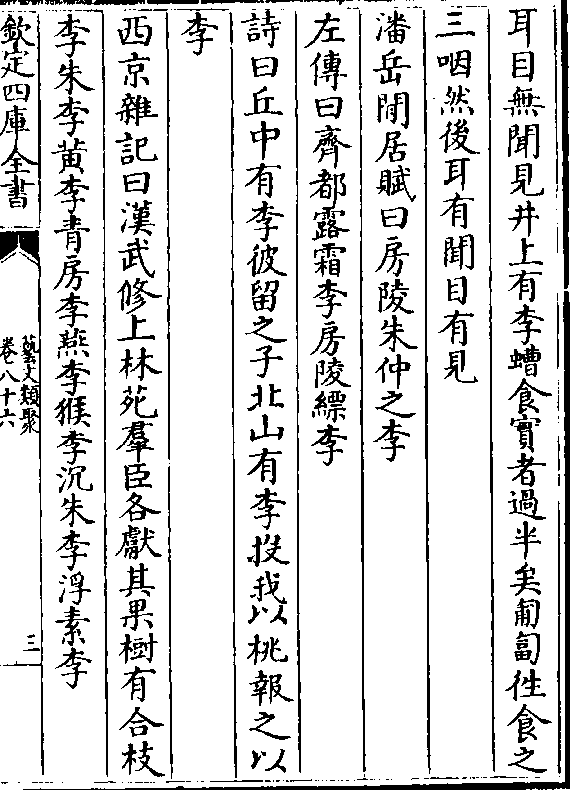 耳目無聞見井上有李螬食實者過半矣匍匐徃食之
三咽然後耳有聞目有見
潘岳閒居賦曰房陵朱仲之李
左傳曰齊都露霜李房陵縹李
詩曰丘中有李彼留之子北山有李投我以桃報之以
李
西京雜記曰漢武修上林苑羣臣各獻其果樹有合枝
李朱李黄李青房李燕李猴李沉朱李浮素李
欽定四庫全書
藝文類聚
卷八十六
三